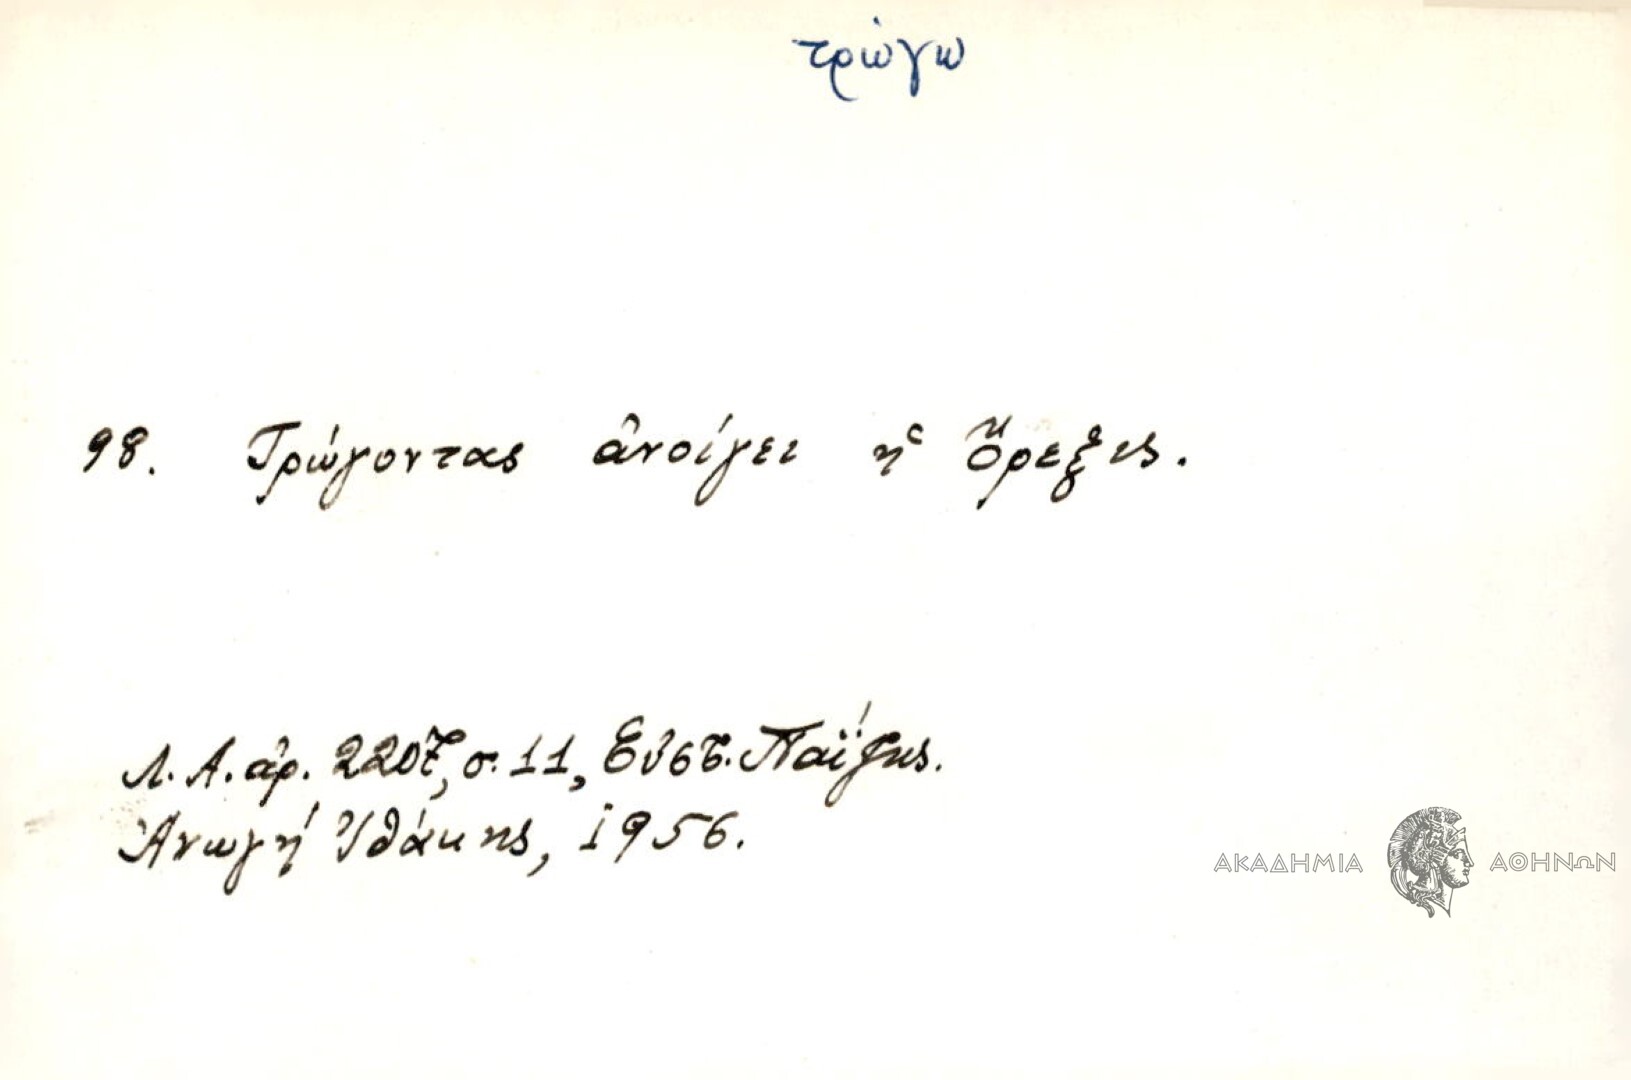 τρώγω
98. Τρώγοντας ἀνοίγει ἡ ὄρεξις.
Λ. Α. ἀρ. 2207, σ. 11, Εὐστ. Παΐζης.
Ἀνωγή Ἰθάκης, 1956.
ΑΚΑΔΗΜΙΑ ΑΘΗΝΩΝ